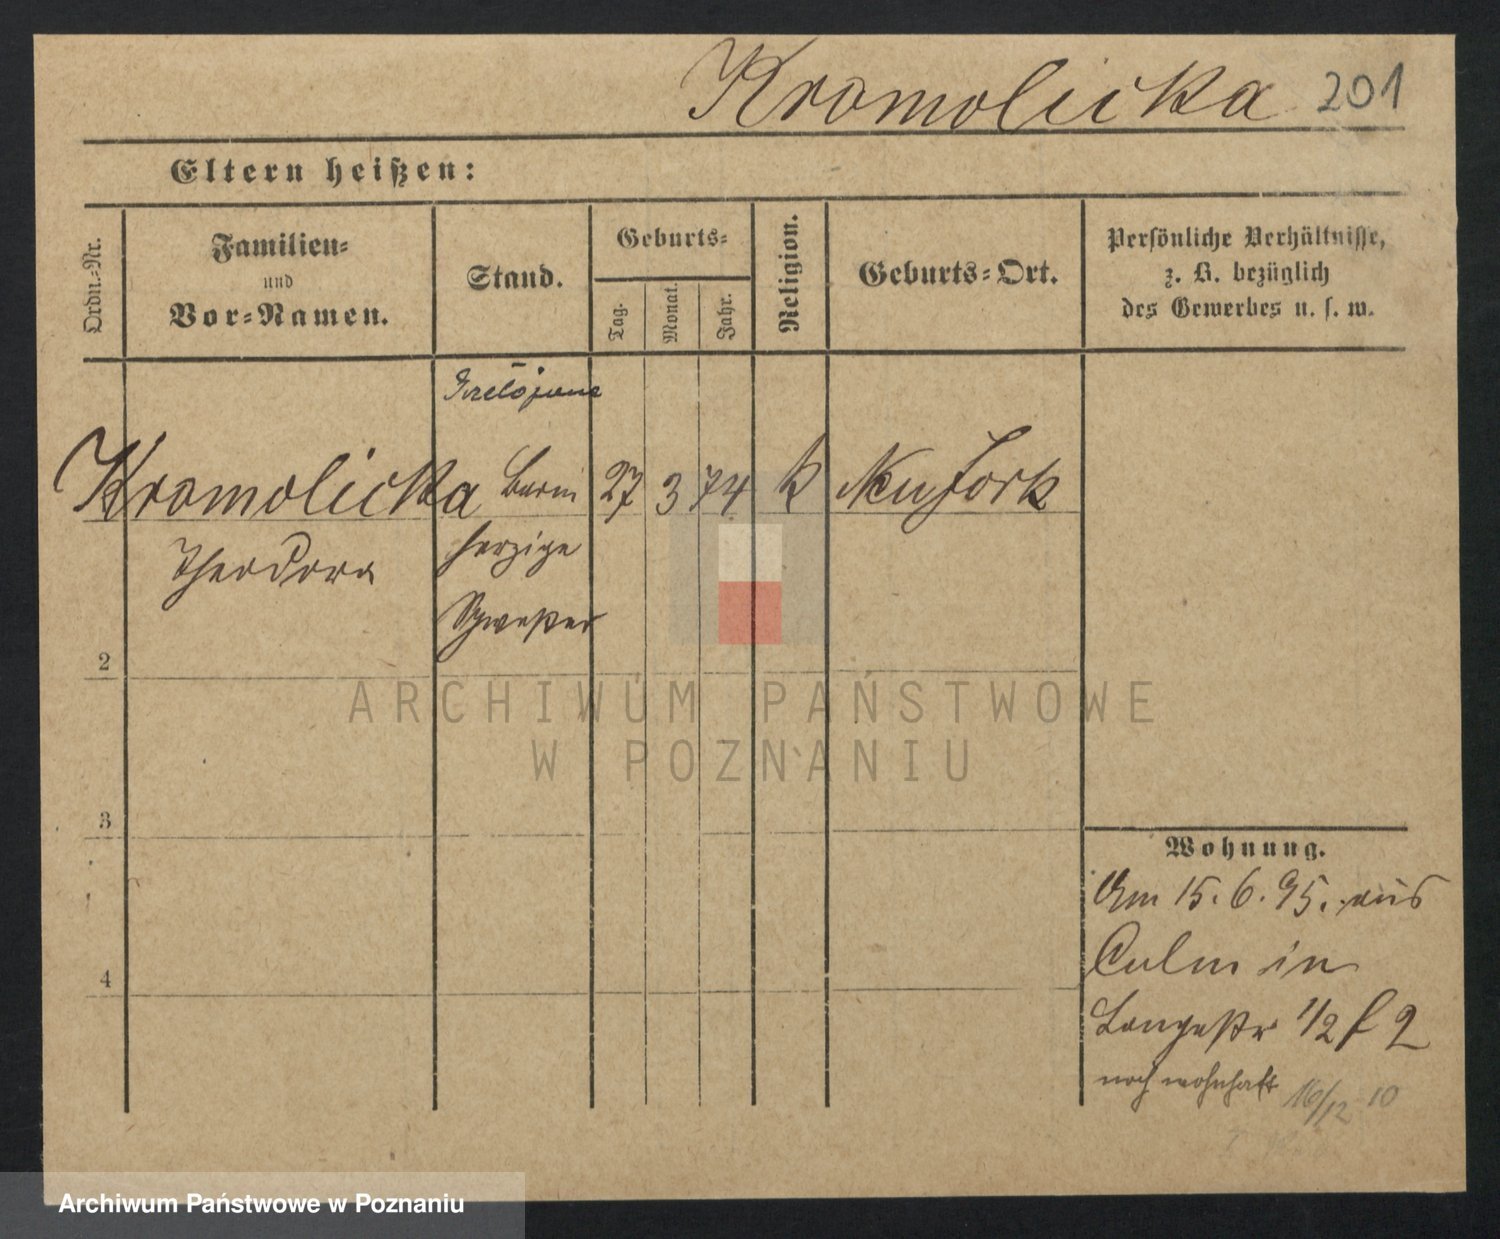 Kromolicka 201
Eltern heißen:
Ordn.-Nr.
Familien-
und
Vor-Namen.
Stand.
Geburts-
Tag.
Monat.
Jahr.
Religion.
Geburts-Ort.
Persönliche Verhältnisse,
z. B. bezüglich
des Gewerbes u. s. w.
Kromolicka Barm 27 3 74 k Neu York
Theodora herzige
Schwester
2
3
4
Wohnung.
Am 15.6.95. aus
Culm in
Langestr 1/2 f 2
noch wohnhaft 16/12 10
ARCHIWUM PAŃSTWOWE
W POZNANIU
Archiwum Państwowe w Poznaniu